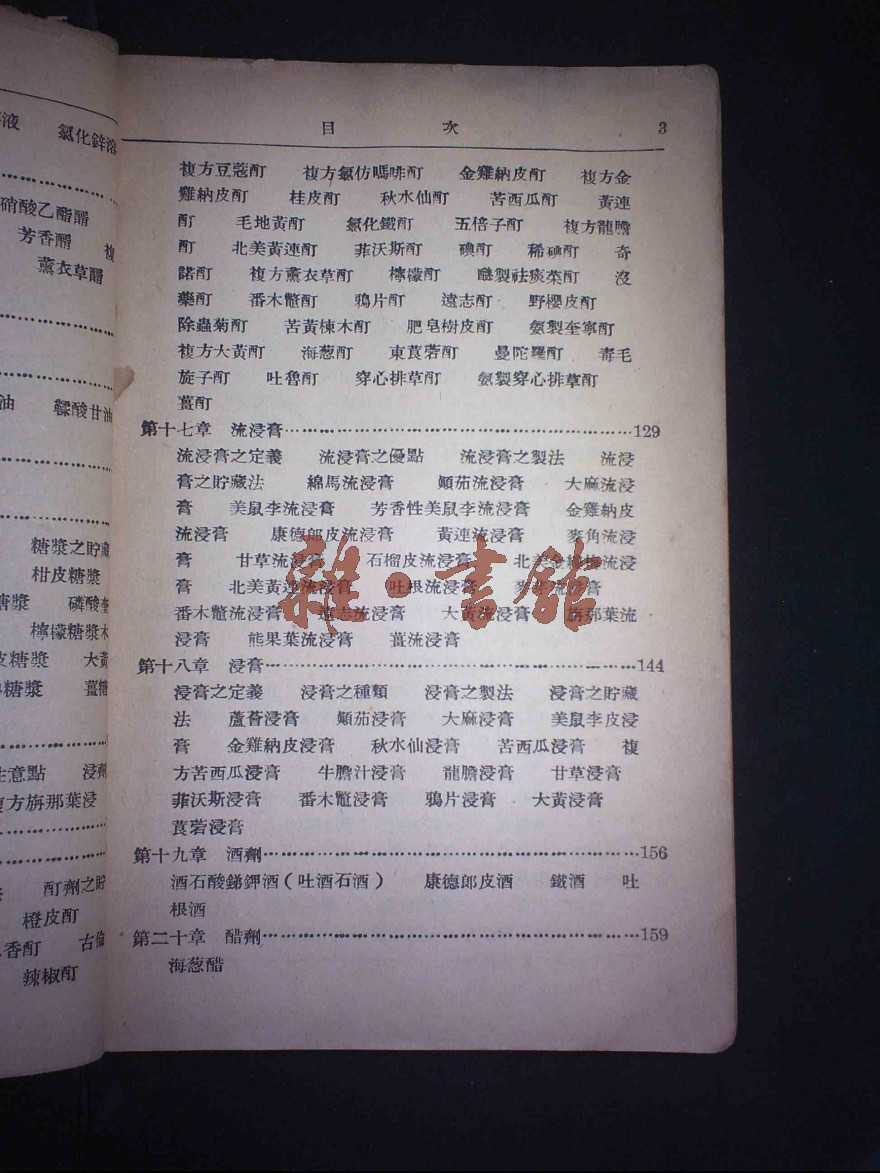 液　氯化鋅溶
硝酸乙酯醑
芳香醑　複
薰衣草醑
油　鞣酸甘油
糖漿之貯藏
柑皮糖漿
糖漿　磷酸奎
檸檬糖漿
皮糖漿　大黃
糖漿　薑糖
注意點　浸劑
複方旃那葉浸
酊劑之貯
橙皮酊
香酊　古倫
辣椒酊
目　次　3
複方豆蔻酊　複方氯仿嗎啡酊　金雞納皮酊　複方金
雞納皮酊　桂皮酊　秋水仙酊　苦西瓜酊　黃連
酊　毛地黃酊　氯化鐵酊　五倍子酊　複方龍膽
酊　北美黃連酊　菲沃斯酊　碘酊　稀碘酊　奇
諾酊　複方薰衣草酊　檸檬酊　醚製祛痰菜酊　沒
藥酊　番木鼈酊　鴉片酊　遠志酊　野櫻皮酊
除蟲菊酊　苦黃楝木酊　肥皂樹皮酊　氨製奎寧酊
複方大黃酊　海葱酊　東莨菪酊　曼陀羅酊　毒毛
旋子酊　吐魯酊　穿心排草酊　氨製穿心排草酊
薑酊
第十七章　流浸膏……………………………………129
流浸膏之定義　流浸膏之優點　流浸膏之製法　流浸
膏之貯藏法　綿馬流浸膏　顛茄流浸膏　大麻流浸
膏　美鼠李流浸膏　芳香性美鼠李流浸膏　金雞納皮
流浸膏　康德郎皮流浸膏　黃連流浸膏　麥角流浸
膏　甘草流浸膏　石榴皮流浸膏　北美金縷梅流浸
膏　北美黃連流浸膏　吐根流浸膏　麥芽流浸膏
番木鼈流浸膏　遠志流浸膏　大黃流浸膏　旃那葉流
浸膏　熊果葉流浸膏　薑流浸膏
第十八章　浸膏……………………………………144
浸膏之定義　浸膏之種類　浸膏之製法　浸膏之貯藏
法　蘆薈浸膏　顛茄浸膏　大麻浸膏　美鼠李皮浸
膏　金雞納皮浸膏　秋水仙浸膏　苦西瓜浸膏　複
方苦西瓜浸膏　牛膽汁浸膏　龍膽浸膏　甘草浸膏
菲沃斯浸膏　番木鼈浸膏　鴉片浸膏　大黃浸膏
莨菪浸膏
第十九章　酒劑……………………………………156
酒石酸銻鉀酒（吐酒石酒）　康德郎皮酒　鐵酒　吐
根酒
第二十章　醋劑……………………………………159
海葱醋
雜·書館